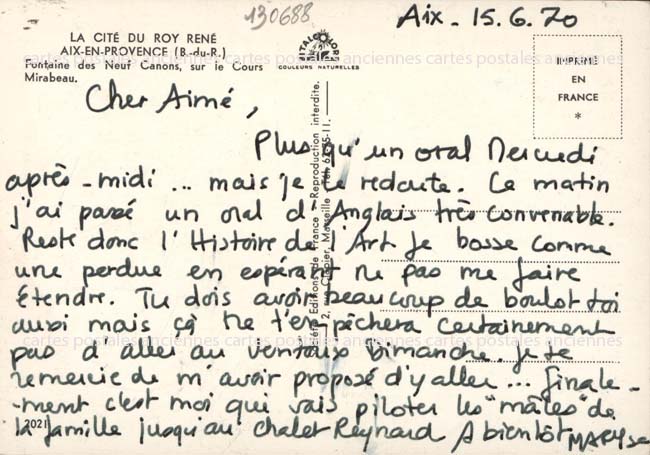 130688
Aix - 15.6.70
LA CITÉ DU ROY RENÉ
AIX-EN-PROVENCE (B.-du-R.)
Fontaine des Neuf Canons, sur le Cours
Mirabeau.
ITALCOLOR
COULEURS NATURELLES
IMPRIMÉ
EN
FRANCE
*
cartes postales anciennes cartes postales anciennes cartes postales anciennes
Cher Aimé,
Plus qu'un oral Mercredi
après-midi ... mais je le redoute. Ce matin
j'ai passé un oral d'Anglais très convenable.
Reste donc l'Histoire de l'Art je bosse comme
une perdue en espérant ne pas me faire
étendre. Tu dois avoir beaucoup de boulot toi
aussi mais ça ne t'empêchera certainement
pas d'aller au Ventoux Dimanche. Je te
remercie de m'avoir proposé d'y aller ... finale-
-ment c'est moi qui vais piloter les "mâles" de
la famille jusqu'au chalet Reynard A bientôt MARYSE
2021
Editions de France - Reproduction interdite.
Marseille
cartes postales anciennes cartes postales anciennes cartes postales anciennes